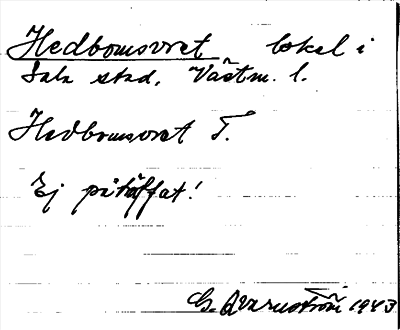 Hedbomsvret lokal i
Sala stad, Västm. l.
Hedbomsvret T.
Ej påträffat!
G. Qvarnström 1943